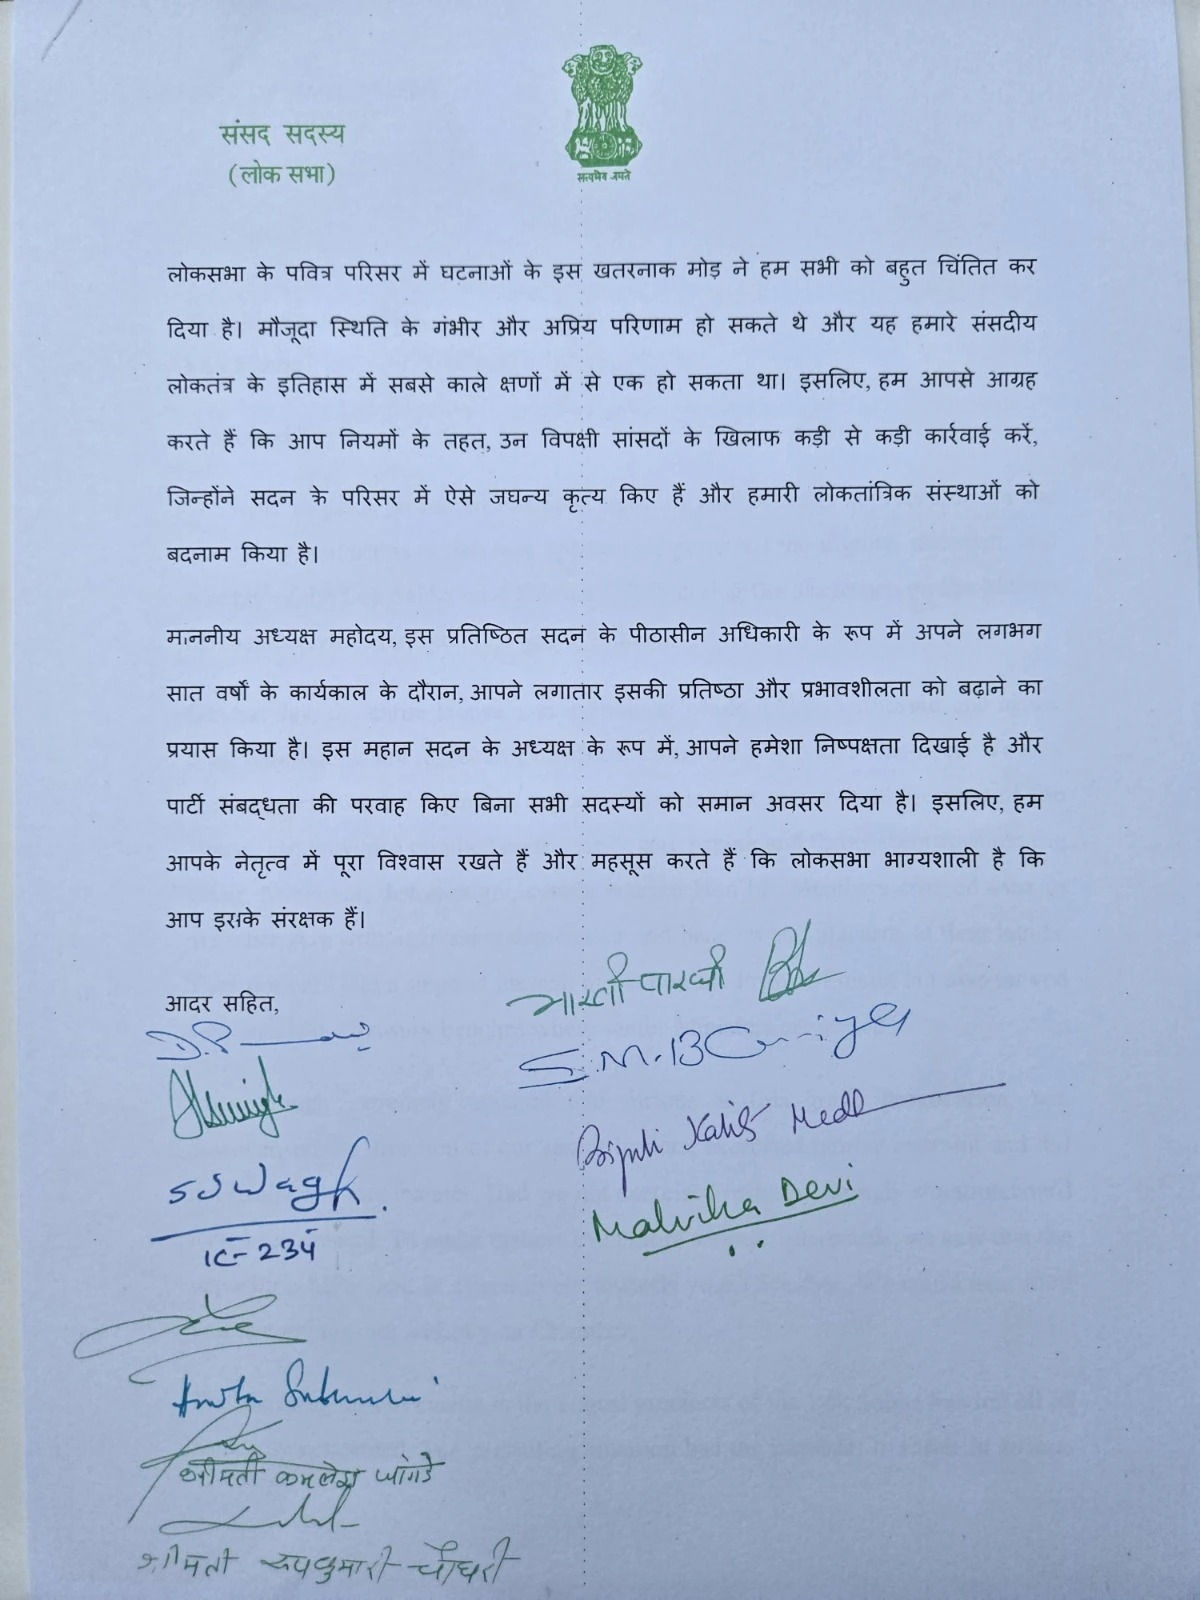 संसद सदस्य
(लोक सभा)
सत्यमेव जयते
लोकसभा के पवित्र परिसर में घटनाओं के इस खतरनाक मोड़ ने हम सभी को बहुत चिंतित कर
दिया है। मौजूदा स्थिति के गंभीर और अप्रिय परिणाम हो सकते थे और यह हमारे संसदीय
लोकतंत्र के इतिहास में सबसे काले क्षणों में से एक हो सकता था। इसलिए, हम आपसे आग्रह
करते हैं कि आप नियमों के तहत, उन विपक्षी सांसदों के खिलाफ कड़ी से कड़ी कार्रवाई करें,
जिन्होंने सदन के परिसर में ऐसे जघन्य कृत्य किए हैं और हमारी लोकतांत्रिक संस्थाओं को
बदनाम किया है।
माननीय अध्यक्ष महोदय, इस प्रतिष्ठित सदन के पीठासीन अधिकारी के रूप में अपने लगभग
सात वर्षों के कार्यकाल के दौरान, आपने लगातार इसकी प्रतिष्ठा और प्रभावशीलता को बढ़ाने का
प्रयास किया है। इस महान सदन के अध्यक्ष के रूप में, आपने हमेशा निष्पक्षता दिखाई है और
पार्टी संबद्धता की परवाह किए बिना सभी सदस्यों को समान अवसर दिया है। इसलिए, हम
आपके नेतृत्व में पूरा विश्वास रखते हैं और महसूस करते हैं कि लोकसभा भाग्यशाली है कि
आप इसके संरक्षक हैं।
आदर सहित,
भारती पारधी
S.M.B
S S Wagh
IC-234
Malvika Devi
श्रीमती कमलेश जांगडे
श्रीमती रूपकुमारी चौधरी